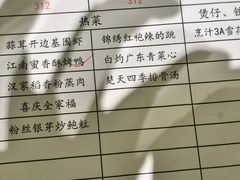 312
312
热菜
煲仔、锅
蒜茸开边基围虾
锦绣红袍辣的跳
烹汁3A雪花
江南蜜香酥烤鸭
白灼广东青菜心
汉家稻香粉蒸肉
楚天四季排骨汤
喜庆全家福
粉丝银芽炒鲍粒